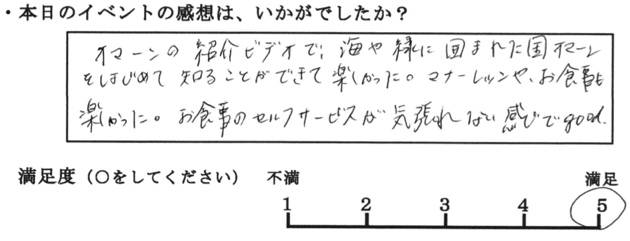 ・本日のイベントの感想は、いかがでしたか？
オマーンの紹介ビデオで、海や緑に囲まれた国オマーン
をはじめて知ることができて楽しかった。マナーレッスンや、お食事も
楽しかった。お食事のセルフサービスが気張れない感じでgood.
満足度（○をしてください） 不満 満足
1 2 3 4 5